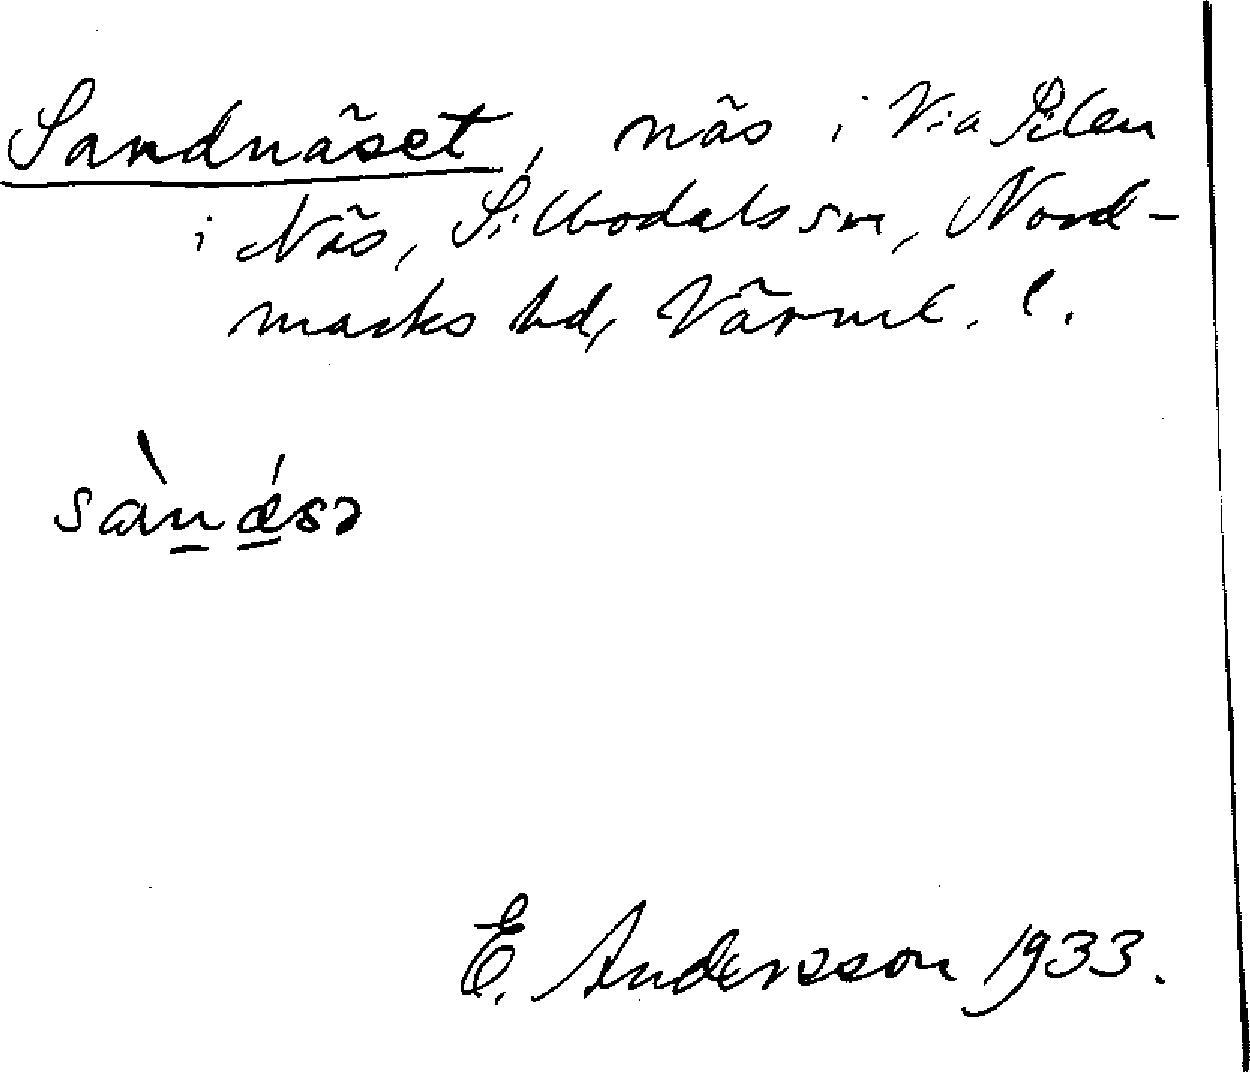 Sandnäset, näs i V:a Silen
i Näs, Sillbodals sn, Nord-
marks hd, Värml. l.
sànǽsə
E. Andersson 1933.